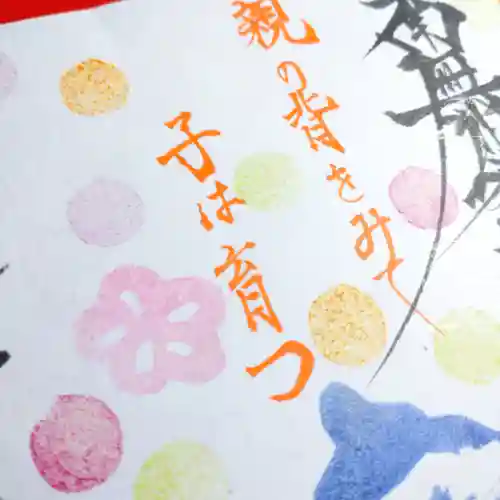 親の背をみて
子は育つ